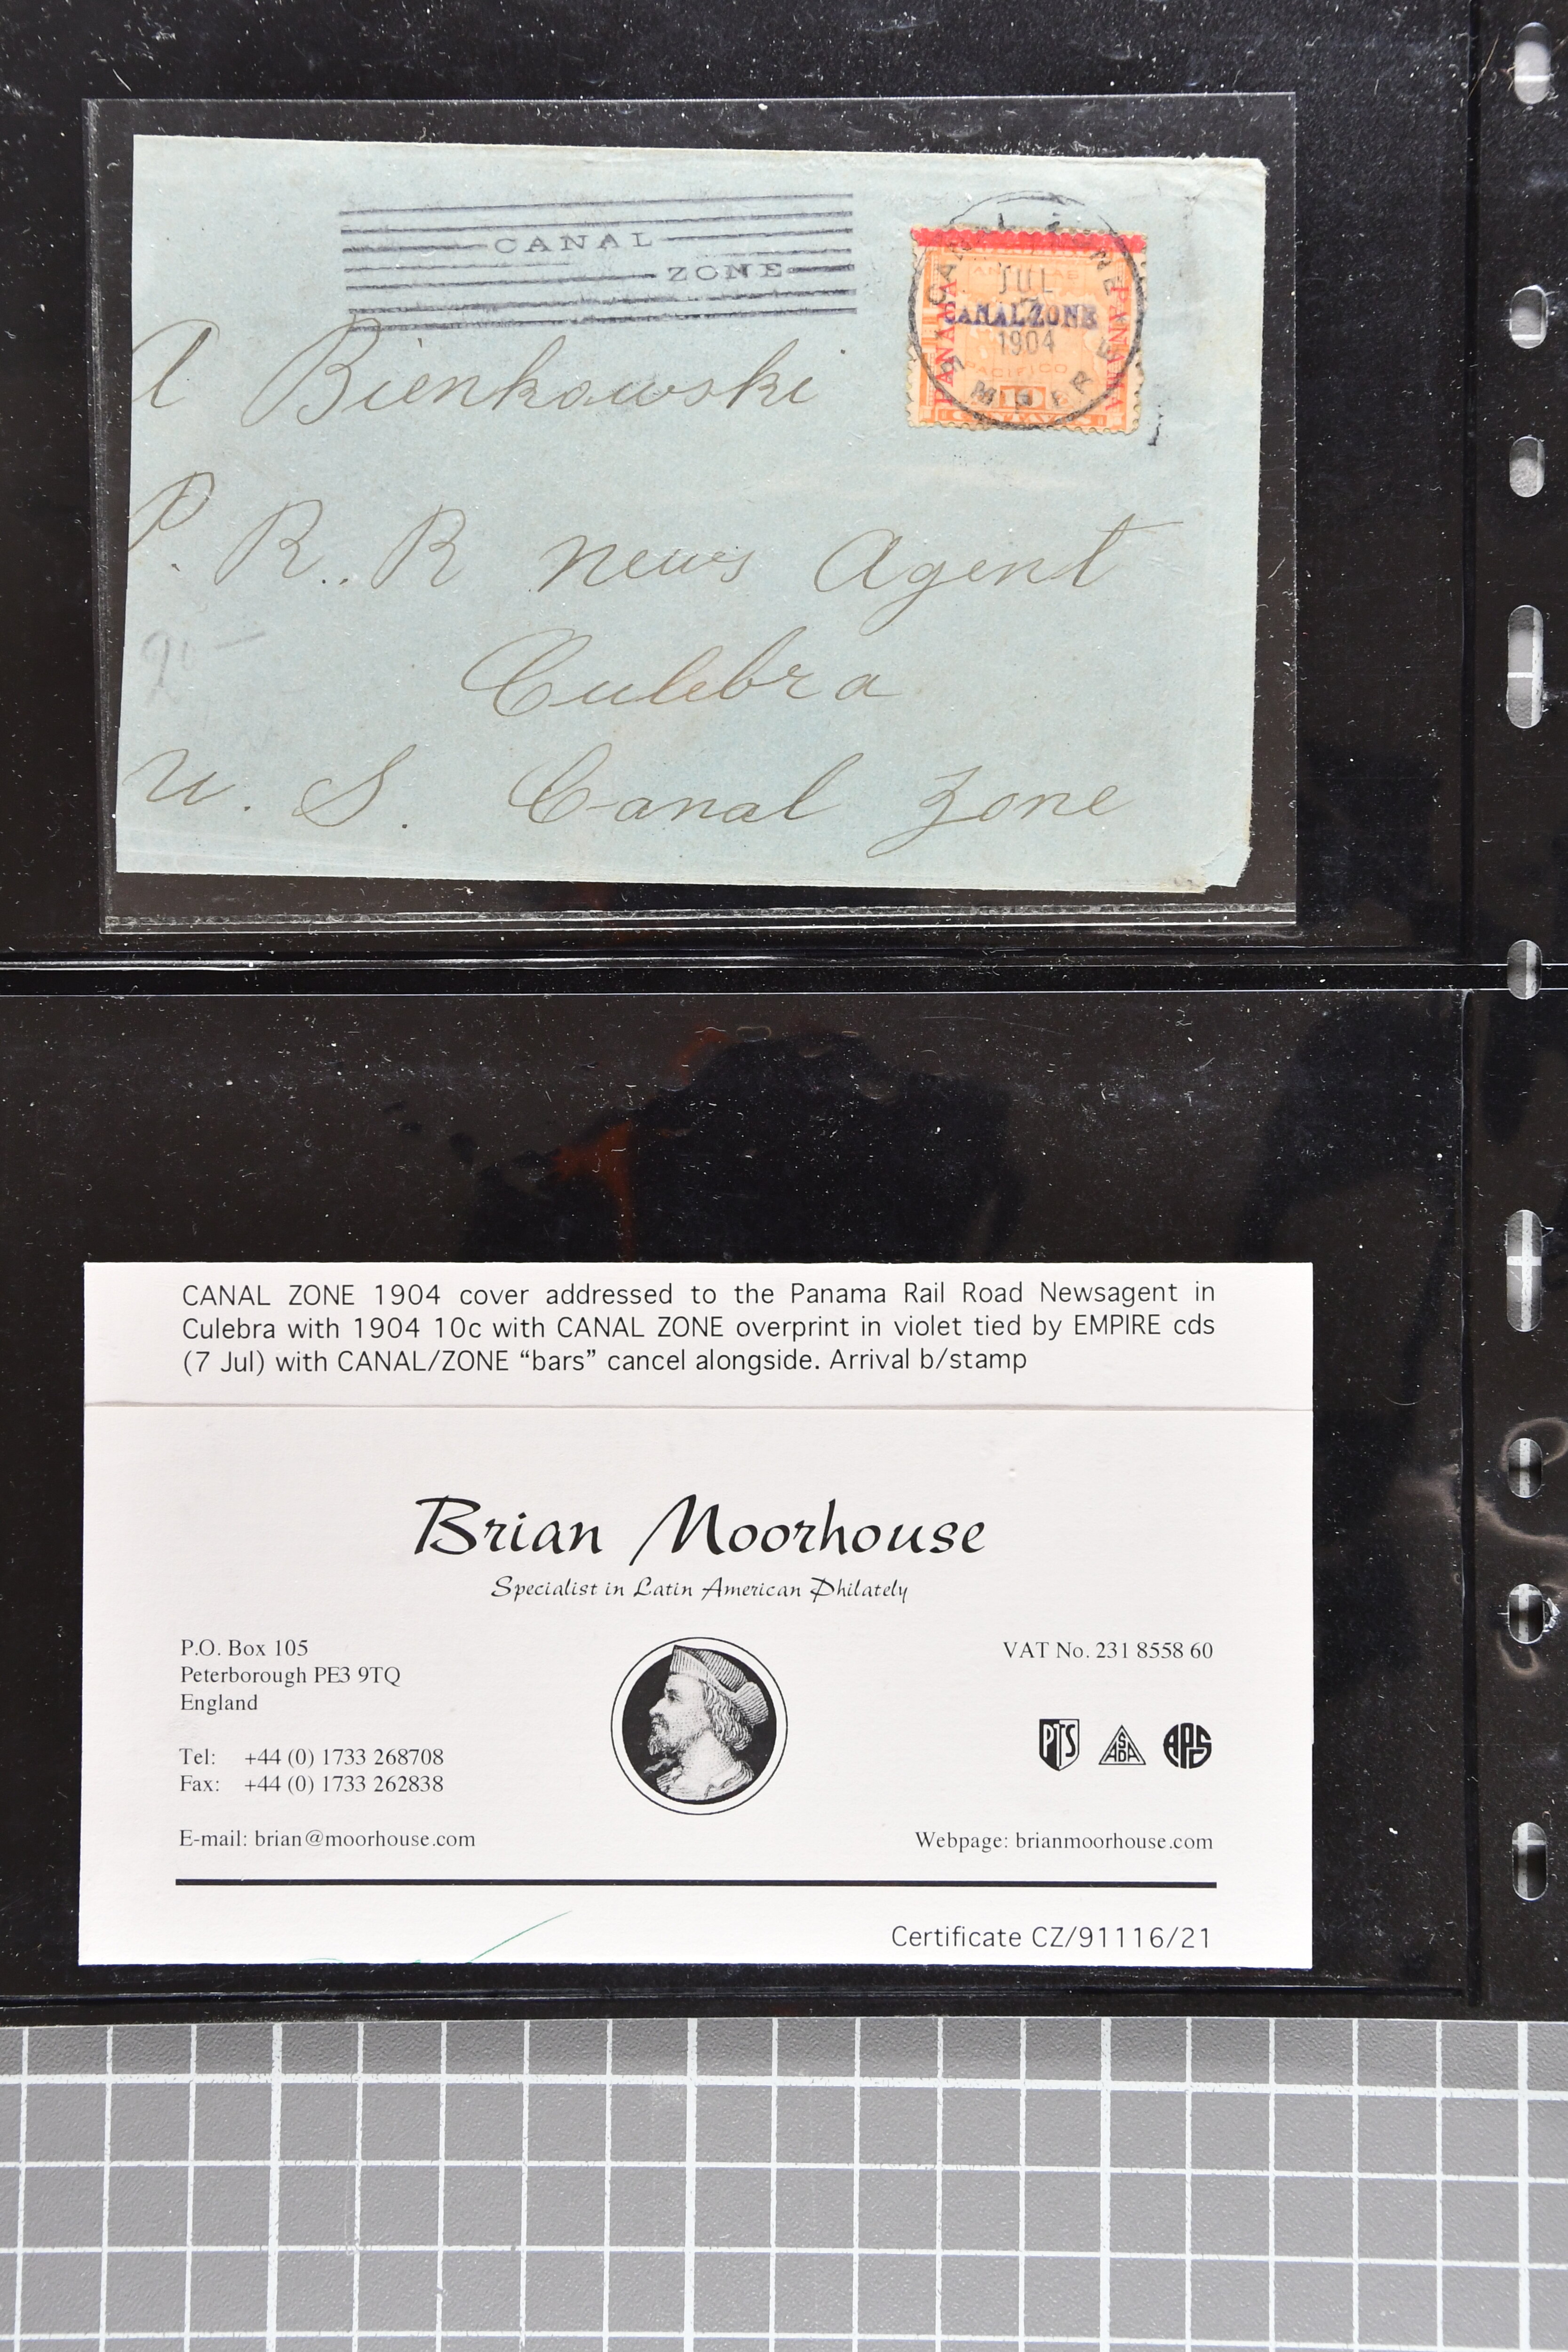 CANAL
ZONE
CANAL ZONE
JUL
7
1904
EMPIRE
PANAMA
CANAL ZONE
PANAMA
PACIFICO
A Bienkowski
P. R. R News Agent
Culebra
U. S. Canal Zone
CANAL ZONE 1904 cover addressed to the Panama Rail Road Newsagent in
Culebra with 1904 10c with CANAL ZONE overprint in violet tied by EMPIRE cds
(7 Jul) with CANAL/ZONE “bars” cancel alongside. Arrival b/stamp
Brian Moorhouse
Specialist in Latin American Philately
P.O. Box 105
Peterborough PE3 9TQ
England
VAT No. 231 8558 60
Tel: +44 (0) 1733 268708
Fax: +44 (0) 1733 262838
PTS ASDA APS
E-mail: brian@moorhouse.com
Webpage: brianmoorhouse.com
Certificate CZ/91116/21